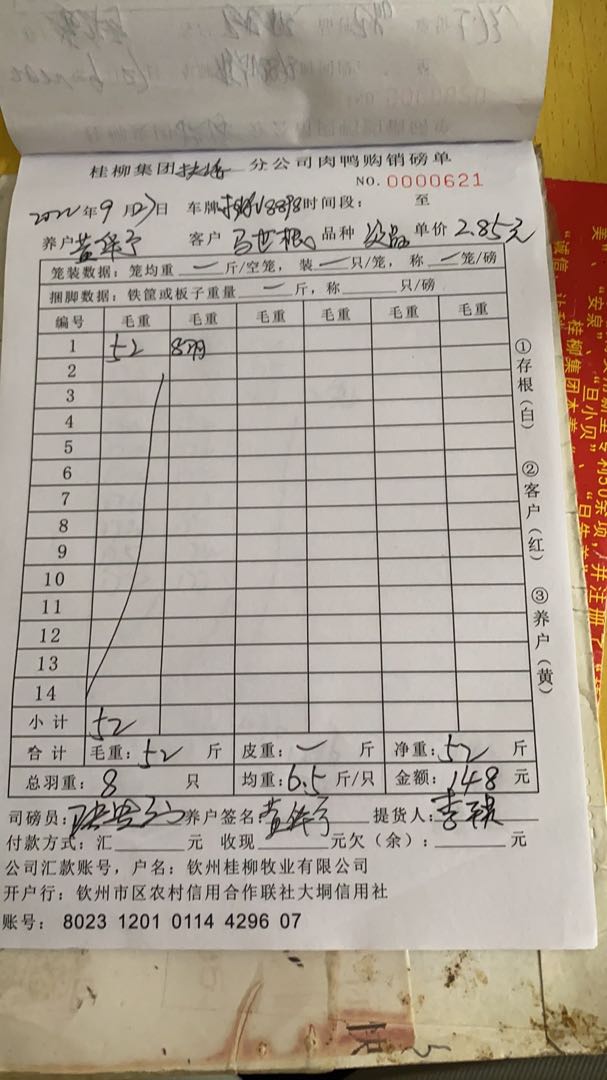 桂柳集团 分公司肉鸭购销磅单
NO. 0000621
2022年9月23日 车牌 时间段: 至
养户 黄 客户 马世根 品种 次品 单价 2.85元
笼装数据:笼均重 一 斤/空笼,装 一 只/笼,称 一 笼/磅
捆脚数据:铁筐或板子重量 一 斤,称 只/磅
编号 毛重 毛重 毛重 毛重 毛重 毛重
1 52 8羽
2
3
4
5
6
7
8
9
10
11
12
13
14
小计 52
合计 毛重:52 斤 皮重:一 斤 净重:52 斤
总羽重:8 只 均重:6.5 斤/只 金额:148 元
司磅员: 养户签名 黄 提货人:李
付款方式:汇 元 收现 元欠(余): 元
公司汇款账号,户名:钦州桂柳牧业有限公司
开户行:钦州市区农村信用合作联社大垌信用社
账号: 8023 1201 0114 4296 07
①存根(白) ②客户(红) ③养户(黄)